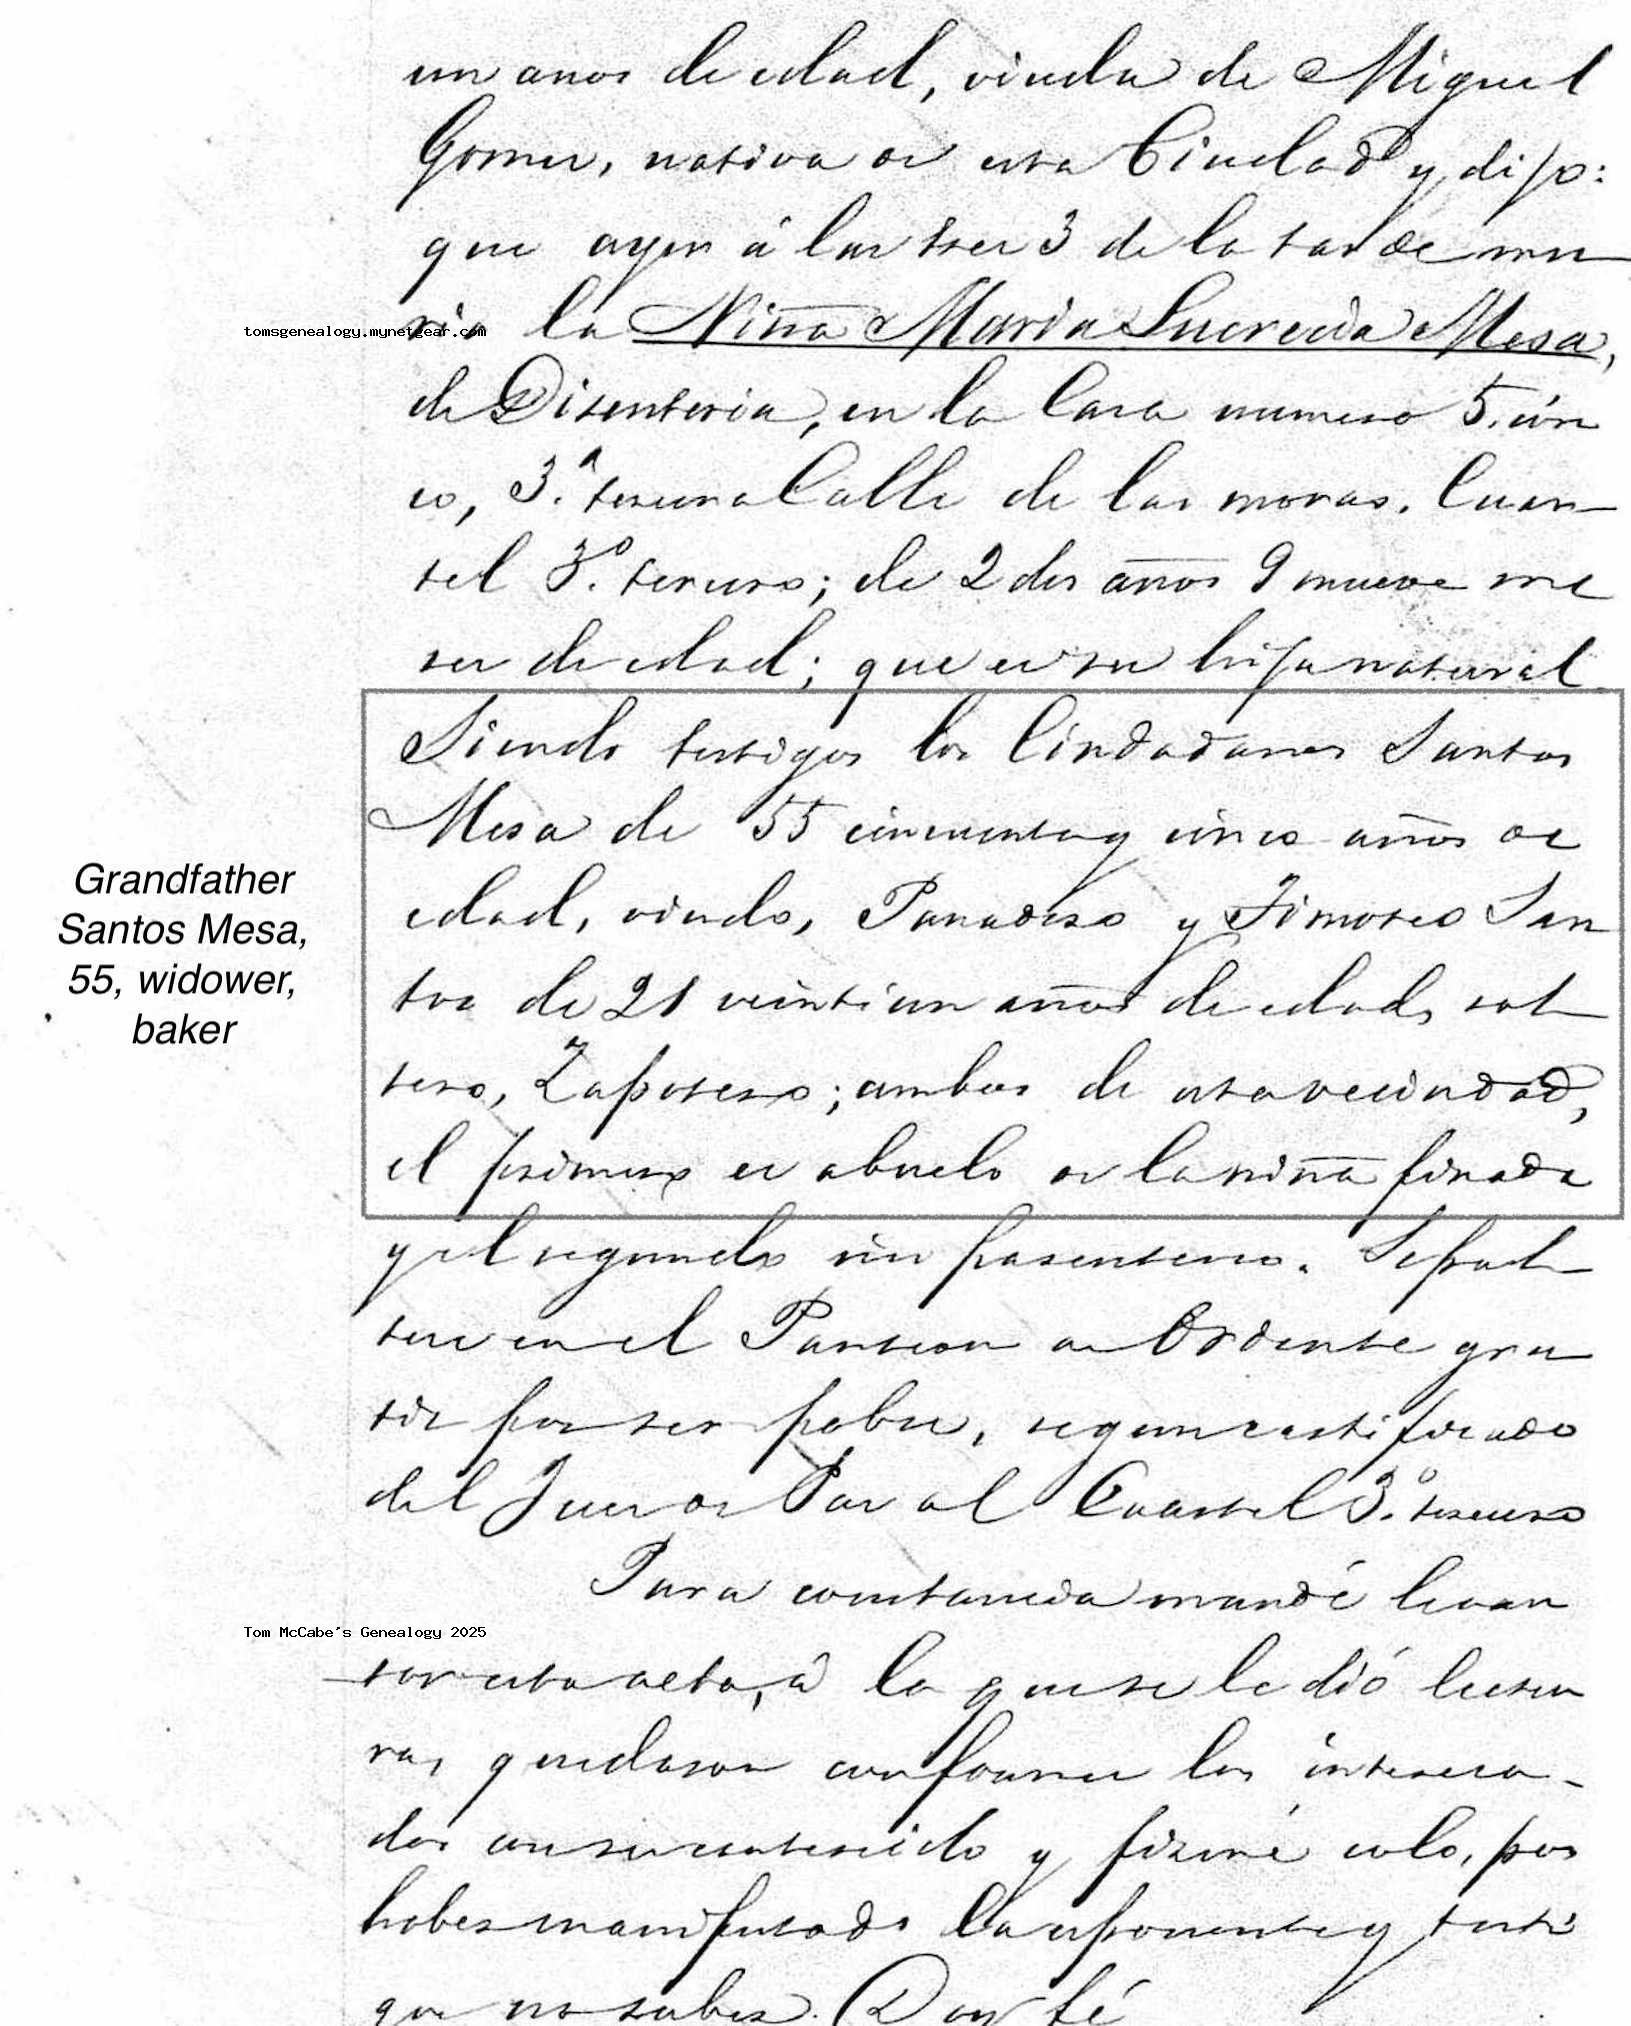 un anos de edad, viuda de Miguel
Gomez, nativa de esta Ciudad y dijo:
que ayer á las tres 3 de la tarde mu
rio la Niña Maria Lucrecia Mesa,
tomsgenealogy.mynetgear.com
de Disenteria, en la Casa numero 5. cin
co, 3.ª tercera Calle de las moras. Cuar
tel 3.º tercero; de 2 dos años 9 nueve me
ses de edad; que es su hija natural
Siendo testigos los Ciudadanos Santos
Mesa de 55 cincuenta y cinco años de
edad, viudo, Panadero y Timoteo San
tos de 21 veintiun años de edad, sol
tero, Zapatero; ambos de esta vecindad,
el primero es abuelo de la niña finada
Grandfather
Santos Mesa,
55, widower,
baker
y el segundo sin parentesco. Sepul
tese en el Panteon de Oriente gra
tis por ser pobre, segun certificado
del Juez de Paz al Cuartel 3.º tercero
Para constancia mandé levan
Tom McCabe's Genealogy 2025
tar esta acta, á la que se le dió lectu
ra, quedaron conformes los interesa-
dos con su contenido y firmé solo, por
haber manifestado La exponente y testi
gos no saber. Doy fé